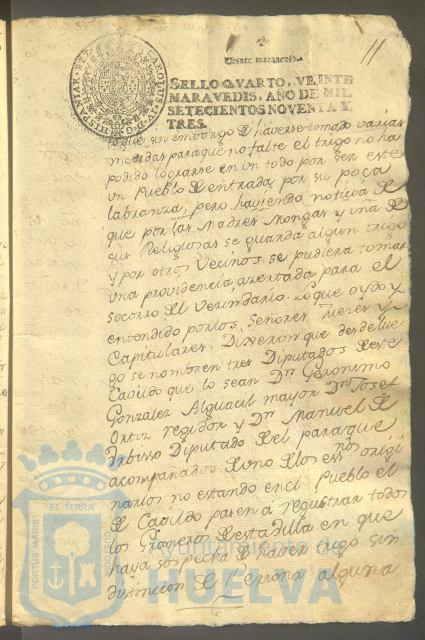 11
HISPANIAR. REX CAROLUS
Veinte maravedis.
SELLO QVARTO, VEINTE
MARAVEDIS, AÑO DE MIL
SETECIENTOS NOVENTA Y
TRES.
que sin embargo de haverse tomado varias
medidas para que no falte el trigo no ha
podido lograrse en un todo por ser este
un Pueblo de entrada, por su poca
labranza, pero haviendo noticia de
que por las Madres Mongas y una de
sus Religiosas se guarda algun trigo
y por otros Vecinos, se pudiera tomar
una providencia asertada para el
socorro del Vecindario. Lo que oydo y
entendido por los Señores
Capitulares. Dixeron que desde lue
go se nombren tres Diputados de este
Cavildo que lo sean Dn. Geronimo
Gonzalez Alguacil mayor Dn. Josef
Ortiz regidor y Dn. Manuel de
Diputado del para que
acompañados de uno de los ess.nos origi
narios no estando en el Pueblo el
de Cavildo pasen a registrar todos
los Graneros de esta Villa en que
haya sospecha de haver trigo sin
distincion de Persona alguna
PORTUS MARIS ET TERRAE CUSTODIA
Ayuntamiento de
HUELVA